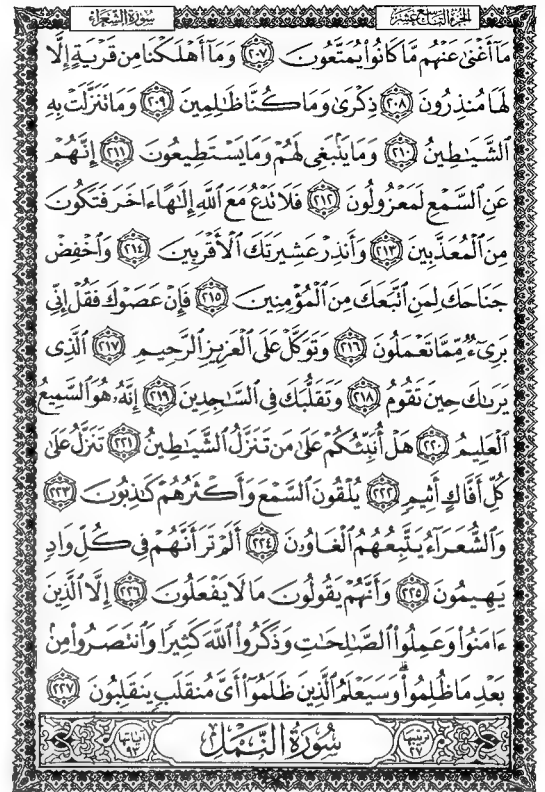 الجزء التاسع عشر سورة الشعراء
مَآ أَغْنَىٰ عَنْهُم مَّا كَانُوا۟ يُمَتَّعُونَ ٢٠٧ وَمَآ أَهْلَكْنَا مِن قَرْيَةٍ إِلَّا
لَهَا مُنذِرُونَ ٢٠٨ ذِكْرَىٰ وَمَا كُنَّا ظَـٰلِمِينَ ٢٠٩ وَمَا تَنَزَّلَتْ بِهِ
ٱلشَّيَـٰطِينُ ٢١٠ وَمَا يَنۢبَغِى لَهُمْ وَمَا يَسْتَطِيعُونَ ٢١١ إِنَّهُمْ
عَنِ ٱلسَّمْعِ لَمَعْزُولُونَ ٢١٢ فَلَا تَدْعُ مَعَ ٱللَّهِ إِلَـٰهًا ءَاخَرَ فَتَكُونَ
مِنَ ٱلْمُعَذَّبِينَ ٢١٣ وَأَنذِرْ عَشِيرَتَكَ ٱلْأَقْرَبِينَ ٢١٤ وَٱخْفِضْ
جَنَاحَكَ لِمَنِ ٱتَّبَعَكَ مِنَ ٱلْمُؤْمِنِينَ ٢١٥ فَإِنْ عَصَوْكَ فَقُلْ إِنِّى
بَرِىٓءٌ مِّمَّا تَعْمَلُونَ ٢١٦ وَتَوَكَّلْ عَلَى ٱلْعَزِيزِ ٱلرَّحِيمِ ٢١٧ ٱلَّذِى
يَرَىٰكَ حِينَ تَقُومُ ٢١٨ وَتَقَلُّبَكَ فِى ٱلسَّـٰجِدِينَ ٢١٩ إِنَّهُۥ هُوَ ٱلسَّمِيعُ
ٱلْعَلِيمُ ٢٢٠ هَلْ أُنَبِّئُكُمْ عَلَىٰ مَن تَنَزَّلُ ٱلشَّيَـٰطِينُ ٢٢١ تَنَزَّلُ عَلَىٰ
كُلِّ أَفَّاكٍ أَثِيمٍ ٢٢٢ يُلْقُونَ ٱلسَّمْعَ وَأَكْثَرُهُمْ كَـٰذِبُونَ ٢٢٣
وَٱلشُّعَرَآءُ يَتَّبِعُهُمُ ٱلْغَاوُۥنَ ٢٢٤ أَلَمْ تَرَ أَنَّهُمْ فِى كُلِّ وَادٍ
يَهِيمُونَ ٢٢٥ وَأَنَّهُمْ يَقُولُونَ مَا لَا يَفْعَلُونَ ٢٢٦ إِلَّا ٱلَّذِينَ
ءَامَنُوا۟ وَعَمِلُوا۟ ٱلصَّـٰلِحَـٰتِ وَذَكَرُوا۟ ٱللَّهَ كَثِيرًا وَٱنتَصَرُوا۟ مِنۢ
بَعْدِ مَا ظُلِمُوا۟ ۗ وَسَيَعْلَمُ ٱلَّذِينَ ظَلَمُوٓا۟ أَىَّ مُنقَلَبٍ يَنقَلِبُونَ ٢٢٧
ترتيبها ٢٧ سُورَةُ النَّمْلِ آياتها ٩٣